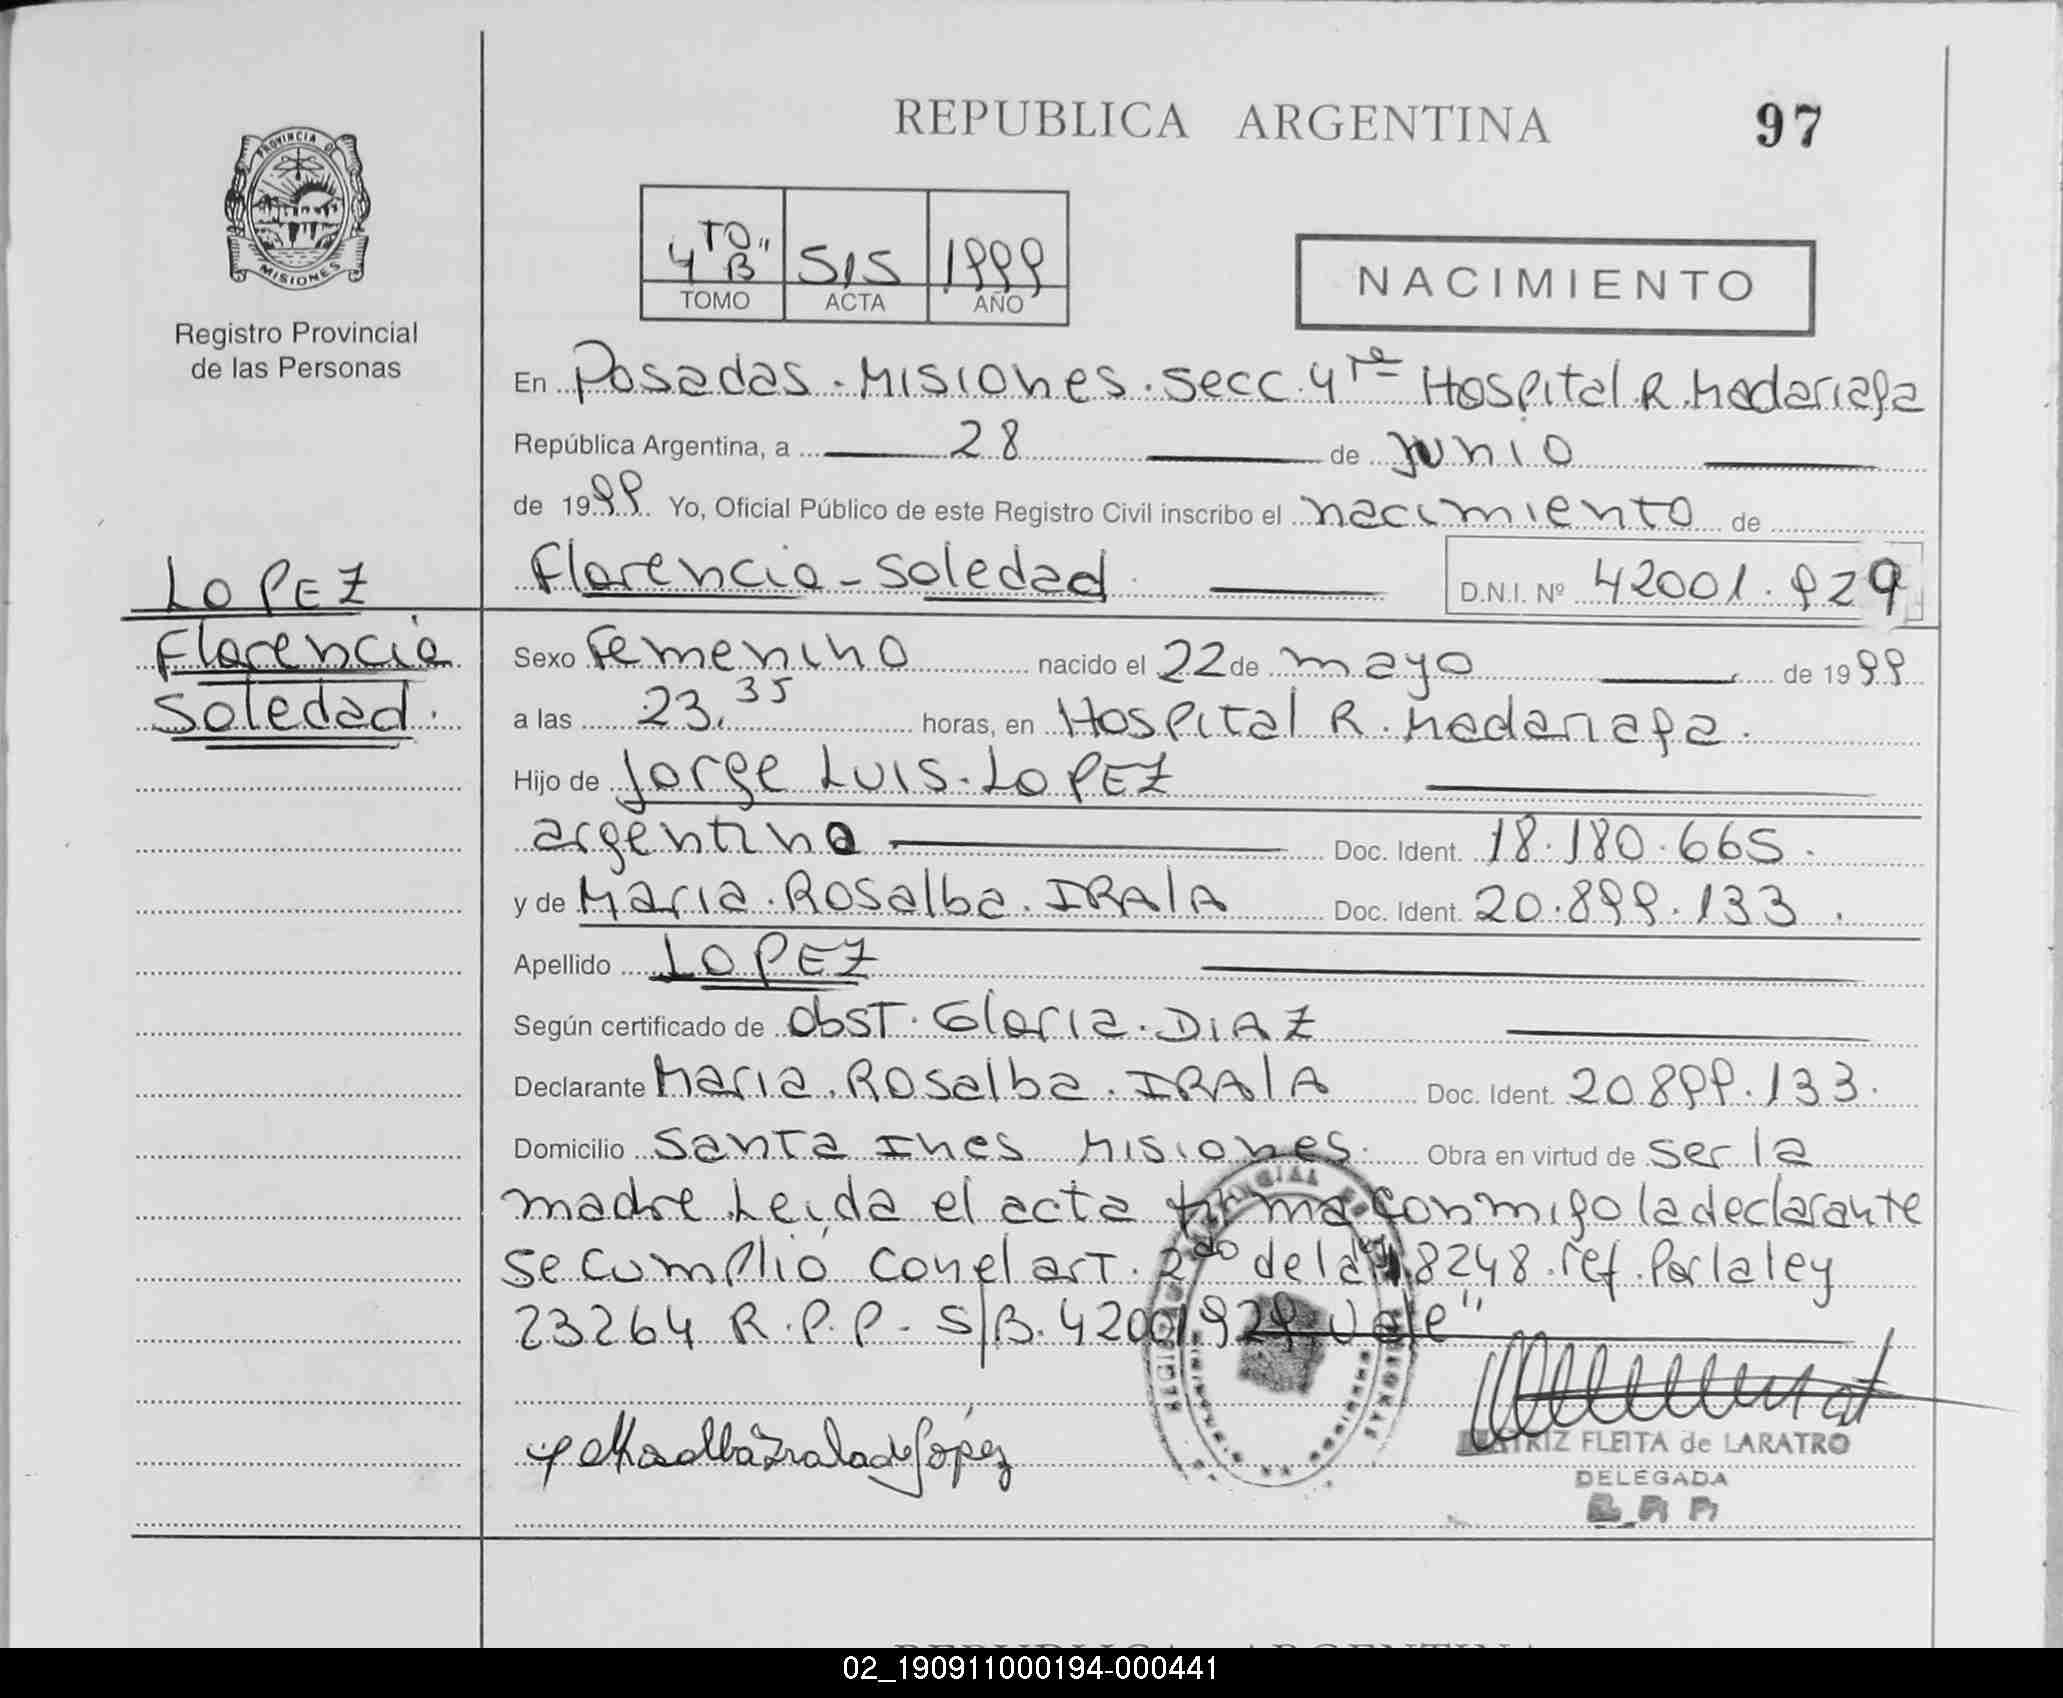 REPUBLICA ARGENTINA
97
PROVINCIA DE
MISIONES
Registro Provincial
de las Personas
4TO "B" 515 1999
TOMO ACTA AÑO
NACIMIENTO
En Posadas. Misiones. secc. 4ta Hospital R. Madariaga
República Argentina, a 28 de junio
de 1999 Yo, Oficial Público de este Registro Civil inscribo el nacimiento de
Florencia - Soledad D.N.I. Nº 42001.929
LOPEZ
Florencia
Soledad.
Sexo Femenino nacido el 22 de mayo de 1999
a las 23.35 horas, en Hospital R. Madariaga.
Hijo de Jorge Luis. LOPEZ
argentino Doc. Ident. 18.180.665.
y de Maria. Rosalba. IRALA Doc. Ident. 20.899.133.
Apellido LOPEZ
Según certificado de Obst. Gloria. DIAZ
Declarante Maria. Rosalba. IRALA Doc. Ident. 20899.133.
Domicilio Santa Ines Misiones. Obra en virtud de ser la
madre. Leida el acta firma conmigo la declarante
se cumplió con el art. 2do de la 18248. ref. Por la ley
23264 R.P.P. - S/B. 42001929. Vale"
BEATRIZ FLEITA de LARATRO
DELEGADA
REPUBLICA ARGENTINA
02_190911000194-000441